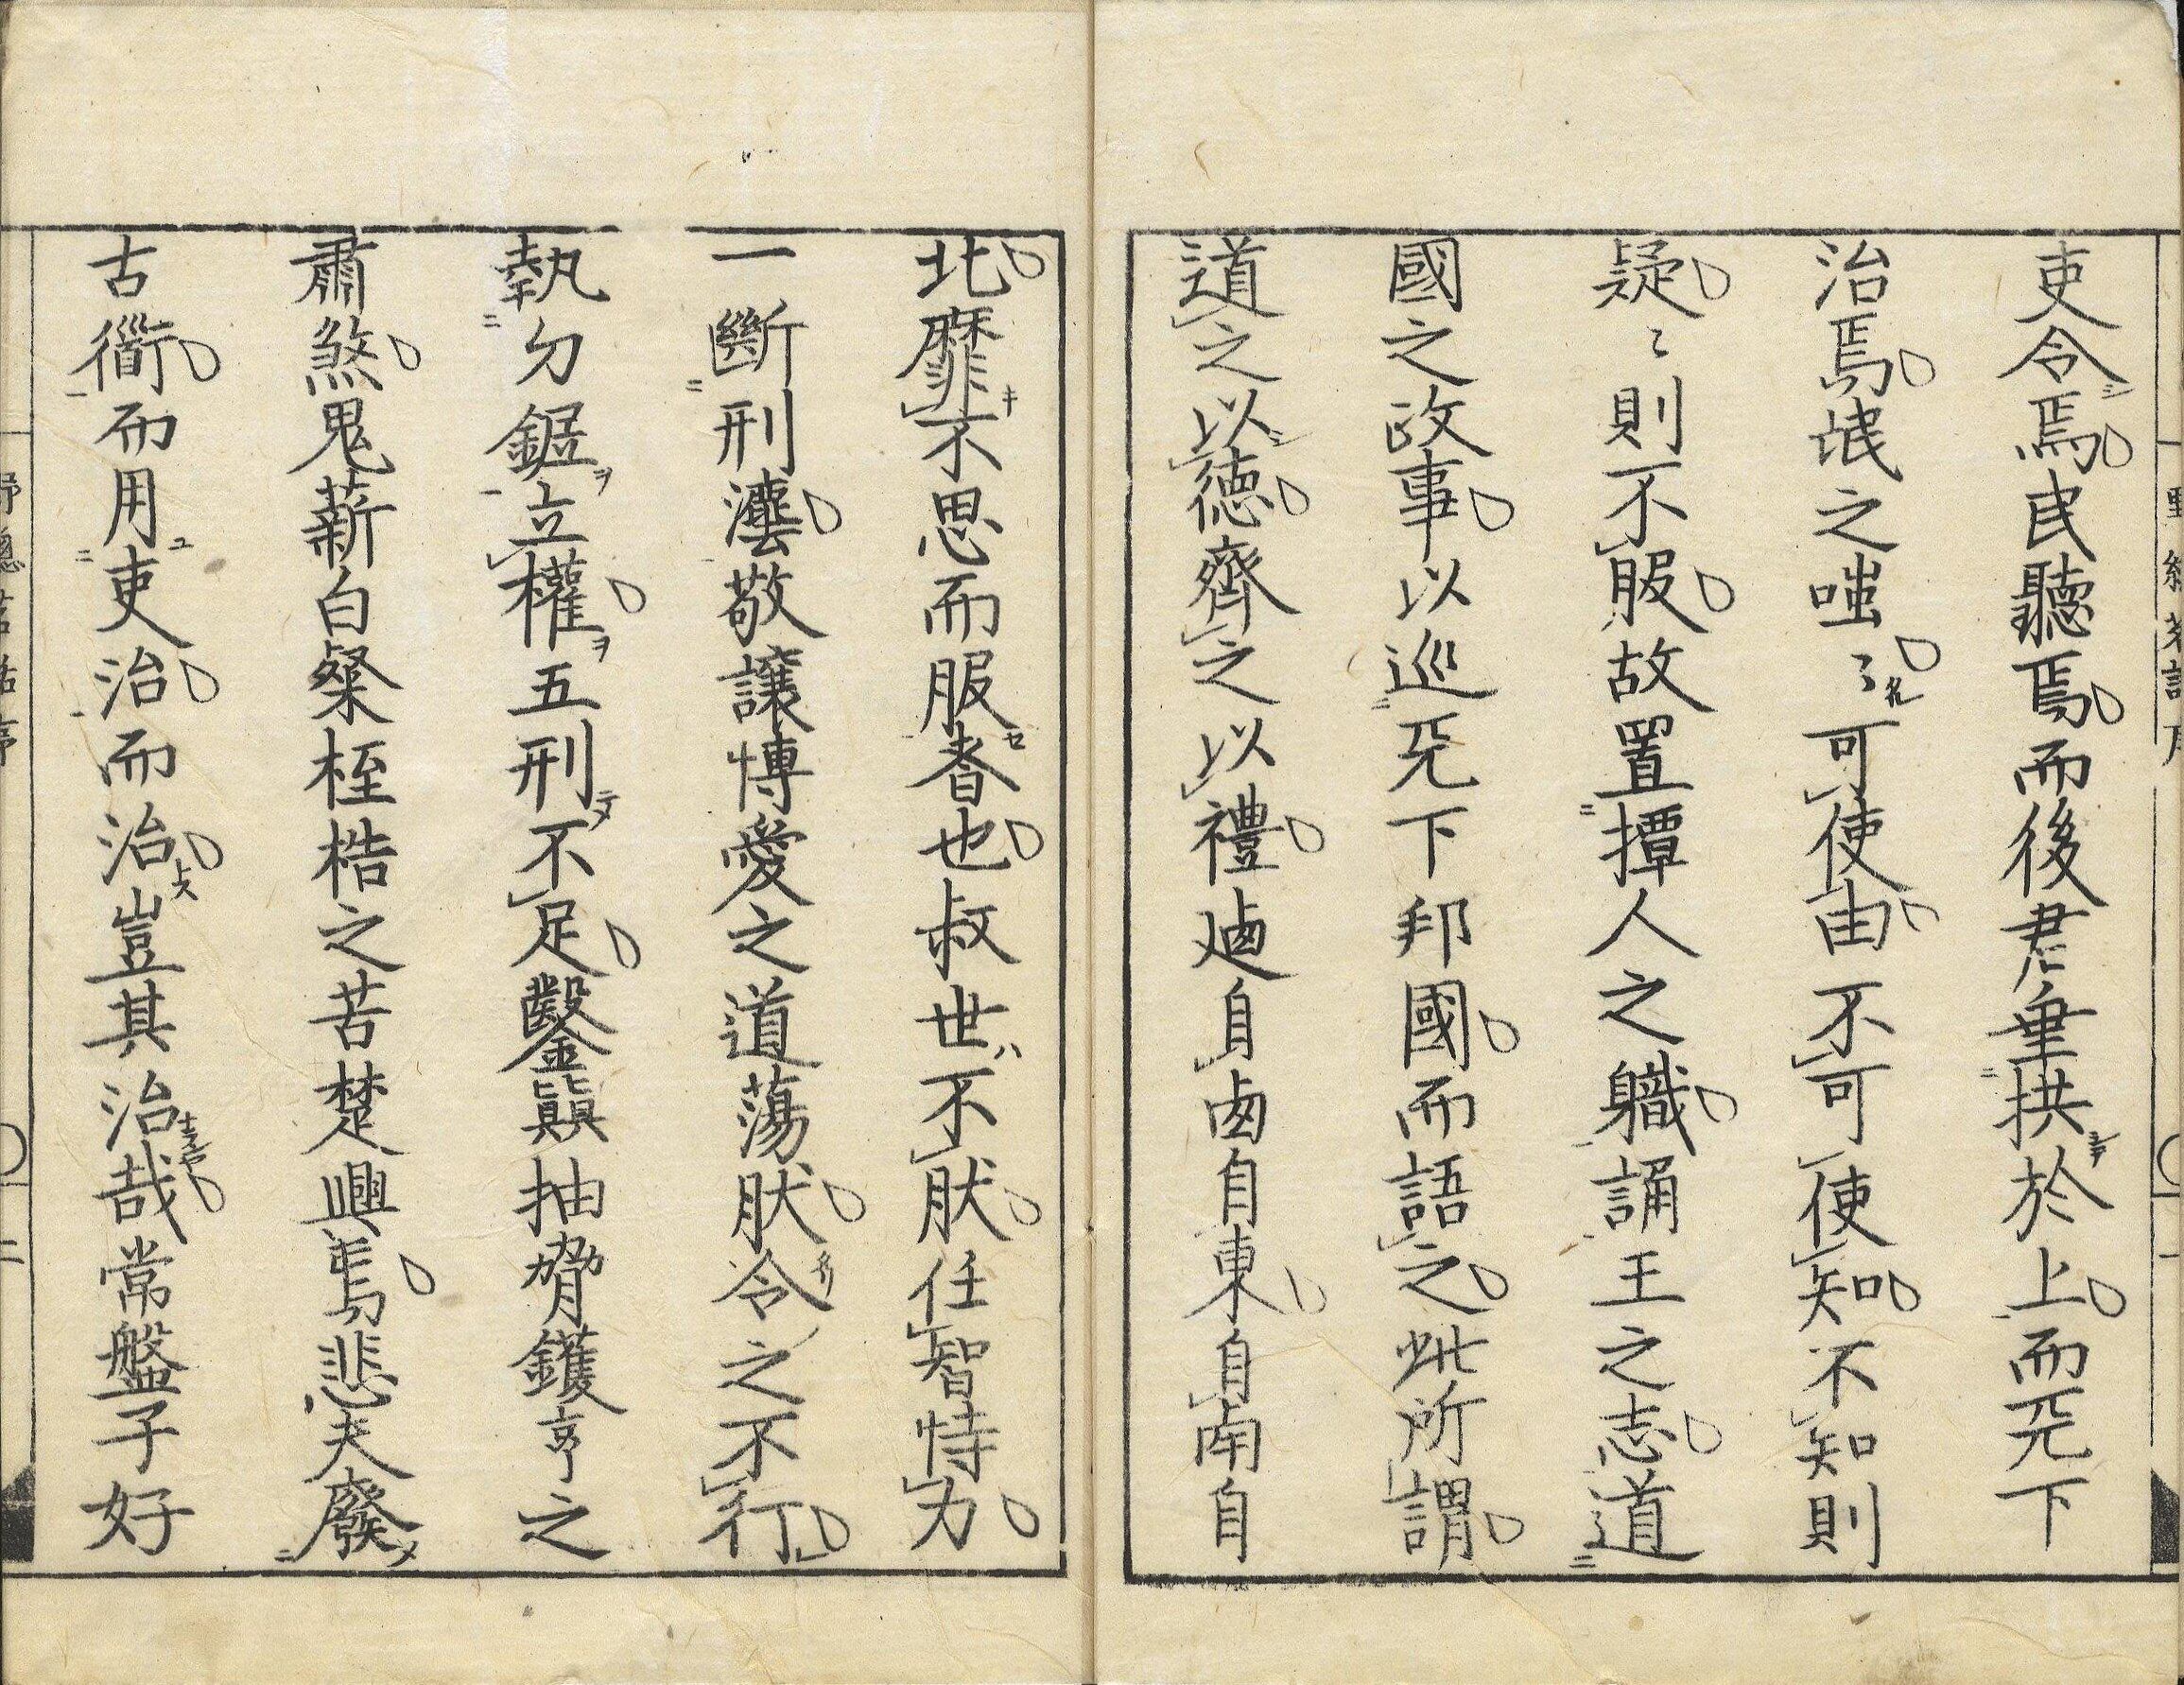 吏令焉民聽焉而後君垂拱於上而旡下
治焉氓之嗤〻可使由不可使知不知則
疑〻則不服故置撢人之職誦王之志道
國之政事以巡旡下邦國而語之此所謂
道之以德齊之以禮廼自西自東自南自
北靡不思而服者也叔世不肰任智恃力
一斷刑灋敬讓博愛之道蕩肰令之不行
執分鋸立權五刑不足鑿顚抽脅鑊亨之
肅煞鬼薪白粲桎梏之苦楚興焉悲夫廢
古衟而用吏治而治豈其治哉常盤子好